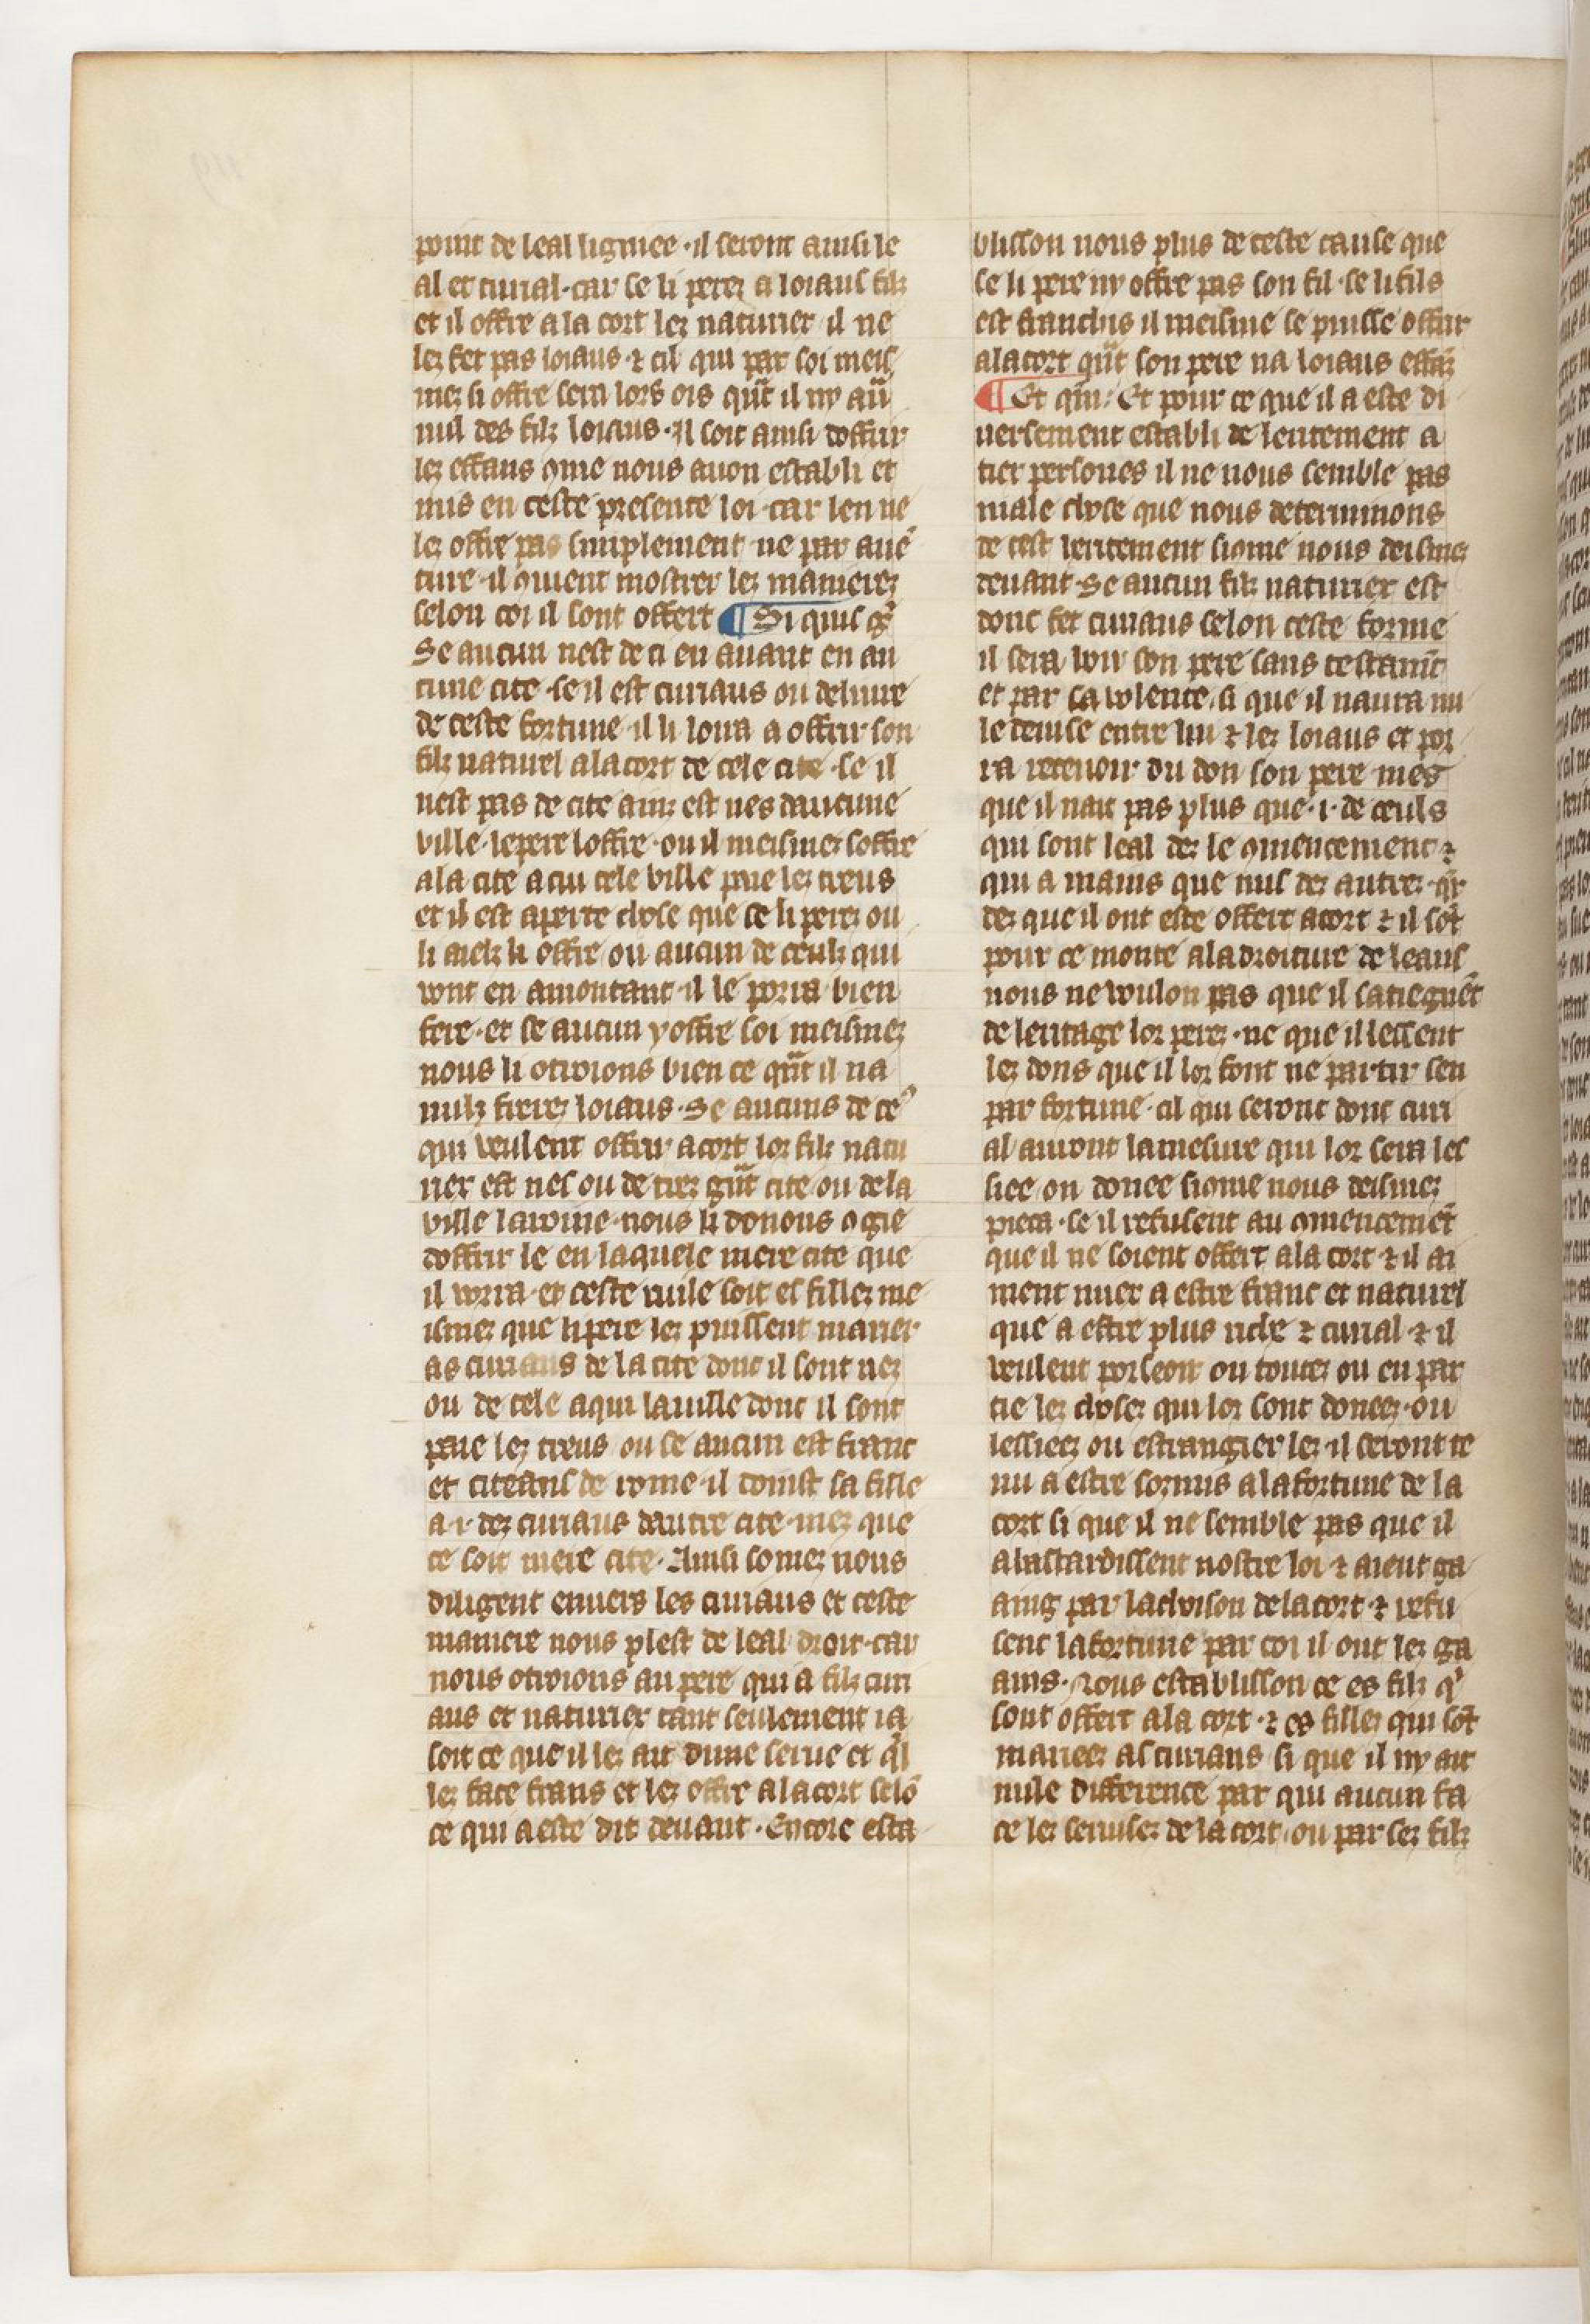 point de leal ligniee · il seront ainsi le
al et curial · car se li perez a loiaus filz
et il offre a la cort lez naturier il ne
lez fet pas loiaus · ⁊ cil qui par soi meis
mez si offre sera lors ois qūt il ny aū
nul des filz loiaus · Il soit ainsi doffrir
lez effans ꝯme nous auon establi et
mis en ceste presente loi · car len ne
lez offre pas simplement ne par auē
ture · il ꝯuient mostrer lez manierez
selon coi il sont offert ¶ Si quis gͥ
Se aucun nest de ci en auant en au
cune cite · se il est curiaus ou deliure
de ceste fortune · il li loira a offrir son
filz naturel a la cort de cele cite · se il
nest pas de cite ainz est nes daucune
ville · le pere loffre · ou il meismez soffre
a la cite a cui cele ville paie lez treus
et il est aperte chose que se li perez ou
li aielz li offre ou aucun de ceulz qui
vont en amontant · il le porra bien
fere · et se aucun y offre soi meismez
nous li otroions bien ce qūt il na
nulz frerez loiaus · Se aucuns de ce᷒
qui veulent offrir a cort lor filz natu
rier est nes ou de trez gūt cite ou de la
ville laroine · nous li donons ꝯgie
doffrir le en laquele mere cite que
il vorra · et ceste riule soit es fillez me
ismez que li pere lez puissent marier
as curiaus de la cite dont il sont nez
ou de cele a qui la uille dont il sont
paie lez treus ou se aucun est franc
et citeans de rome · il doinst sa fille
a · i · dez curiaus dautre cite · mez que
ce soit mere cite · Ainsi somez nous
diligent enuers les curiaus et ceste
maniere nous plest de leal droit · car
nous otroions au pere qui a filz curi
aus et naturier tant seulement ia
soit ce que il lez ait dune serue et qͥl
lez face frans et lez offre a la cort selō
ce qui a este dit deuant · Encore esta
blisson nous plus de ceste cause que
se li pere ny offre pas son fil · se li fils
est franchis il meisme se puisse offrir
a la cort qūt son pere na loiaus effāz
¶ Et qm̄ · Et pour ce que il a este di
uersement establi de leritement a
tier persones il ne nous semble pas
male chose que nous determinons
de cest leritement siꝯme nous deismez
deuant · Se aucun filz naturier est
donc fet curiaus selon ceste forme
il sera hoir son pere sans testamēt
et par sa volente, si que il naura nu
le deuise entre lui ⁊ lez loiaus et por
ra receuoir du don son pere mes
que il nait pas plus que · i · de ceuls
qui sont leal dez le ꝯmencement ⁊
qui a mains que nus dez autrez · qͥr
dez que il ont este offert a cort ⁊ il sōt
pour ce monte a la droiture de leaus
nous ne voulon pas que il satieguēt
de leritage lor perez · ne que il lessent
lez dons que il lor font ne partir sen
par fortune · cil qui seront donc curi
al auront la mesure qui lor sera les
siee ou donee siꝯme nous deismez
pieca · se il refusent au ꝯmencemēt
que il ne soient offert a la cort ⁊ il ai
ment miex a estre franc et naturel
que a estre plus riche ⁊ curial ⁊ il
veulent porseoir ou toutez ou en par
tie lez chosez qui lor sont doneez · ou
lessieez ou estrangier lez · il seront te
nu a estre sormis a la fortune de la
cort si que il ne semble pas que il
abastardissent nostre loi ⁊ aient ga
aing par lachoison de la cort · ⁊ refu
sent la fortune par coi il ont lez ga
ains · Nous establisson ce es filz qͥ
sont offert a la cort · ⁊ es fillez qui sōt
marieez as curiaus si que il ny ait
nule difference par qui aucun fa
ce lez seruisez de la cort · ou par sez filz